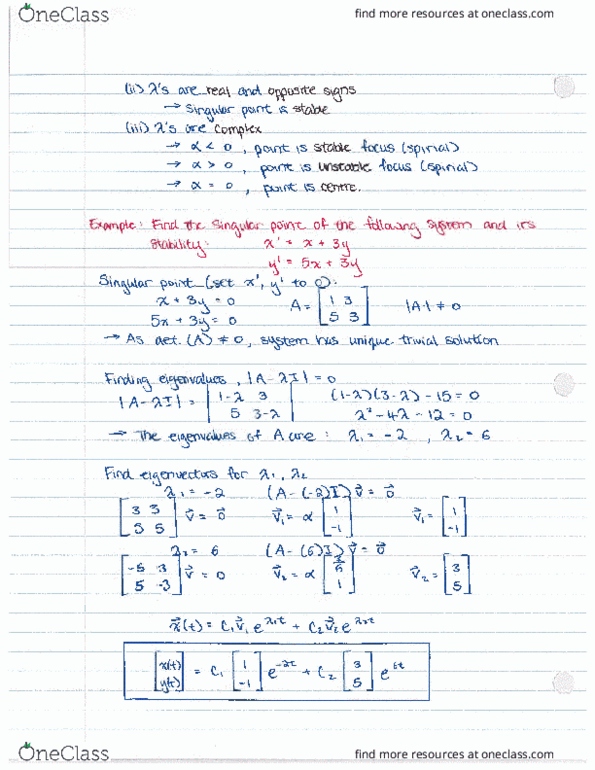 OneClass
find more resources at oneclass.com
(ii) λ's are real and opposite signs
→ Singular point is stable
(iii) λ's are complex
→ α < 0 , point is stable focus (spirial)
→ α > 0 , point is unstable focus (spirial)
→ α = 0 , point is centre.
Example: Find the singular point of the following system and its
stability: x' = x + 3y
y' = 5x + 3y
Singular point (set x', y' to 0):
x + 3y = 0 A = [1 3; 5 3] |A| ≠ 0
5x + 3y = 0
→ As det. (A) ≠ 0, system has unique trivial solution
Finding eigenvalues, |A - λI| = 0
|A - λI| = |1-λ 3; 5 3-λ| (1-λ)(3-λ) - 15 = 0
λ² - 4λ - 12 = 0
→ The eigenvalues of A are: λ₁ = -2 , λ₂ = 6
Find eigenvectors for λ₁, λ₂
λ₁ = -2 (A - (-2)I) v⃗ = 0⃗
[3 3; 5 5] v⃗ = 0⃗ v⃗₁ = α [1; -1] v⃗₁ = [1; -1]
λ₂ = 6 (A - (6)I) v⃗ = 0⃗
[-5 3; 5 -3] v⃗ = 0 v⃗₂ = α [3/5; 1] v⃗₂ = [3; 5]
x⃗(t) = C₁ v⃗₁ e^λ₁t + C₂ v⃗₂ e^λ₂t
[x(t); y(t)] = C₁ [1; -1] e^-2t + C₂ [3; 5] e^6t
OneClass
find more resources at oneclass.com